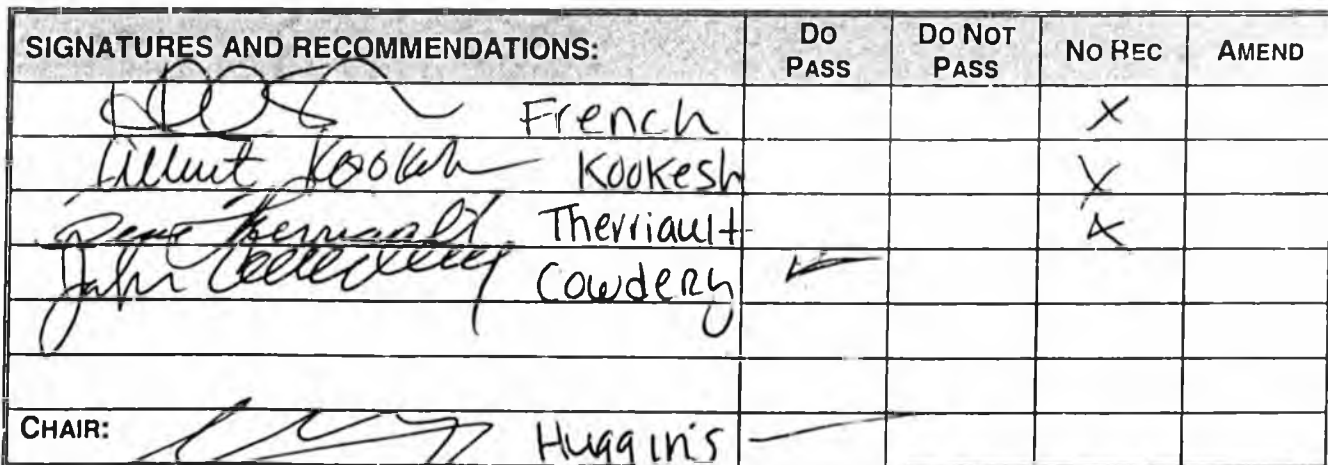 SIGNATURES AND RECOMMENDATIONS: DO PASS DO NOT PASS NO REC AMEND
French X
Kookesh X
Therriault X
John Cowdery Cowdery ✓
CHAIR: Huggins